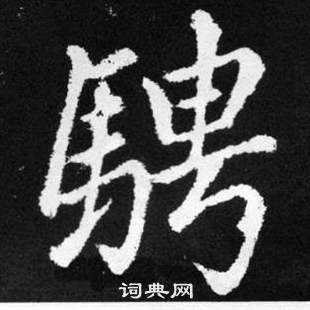 騁
词典网